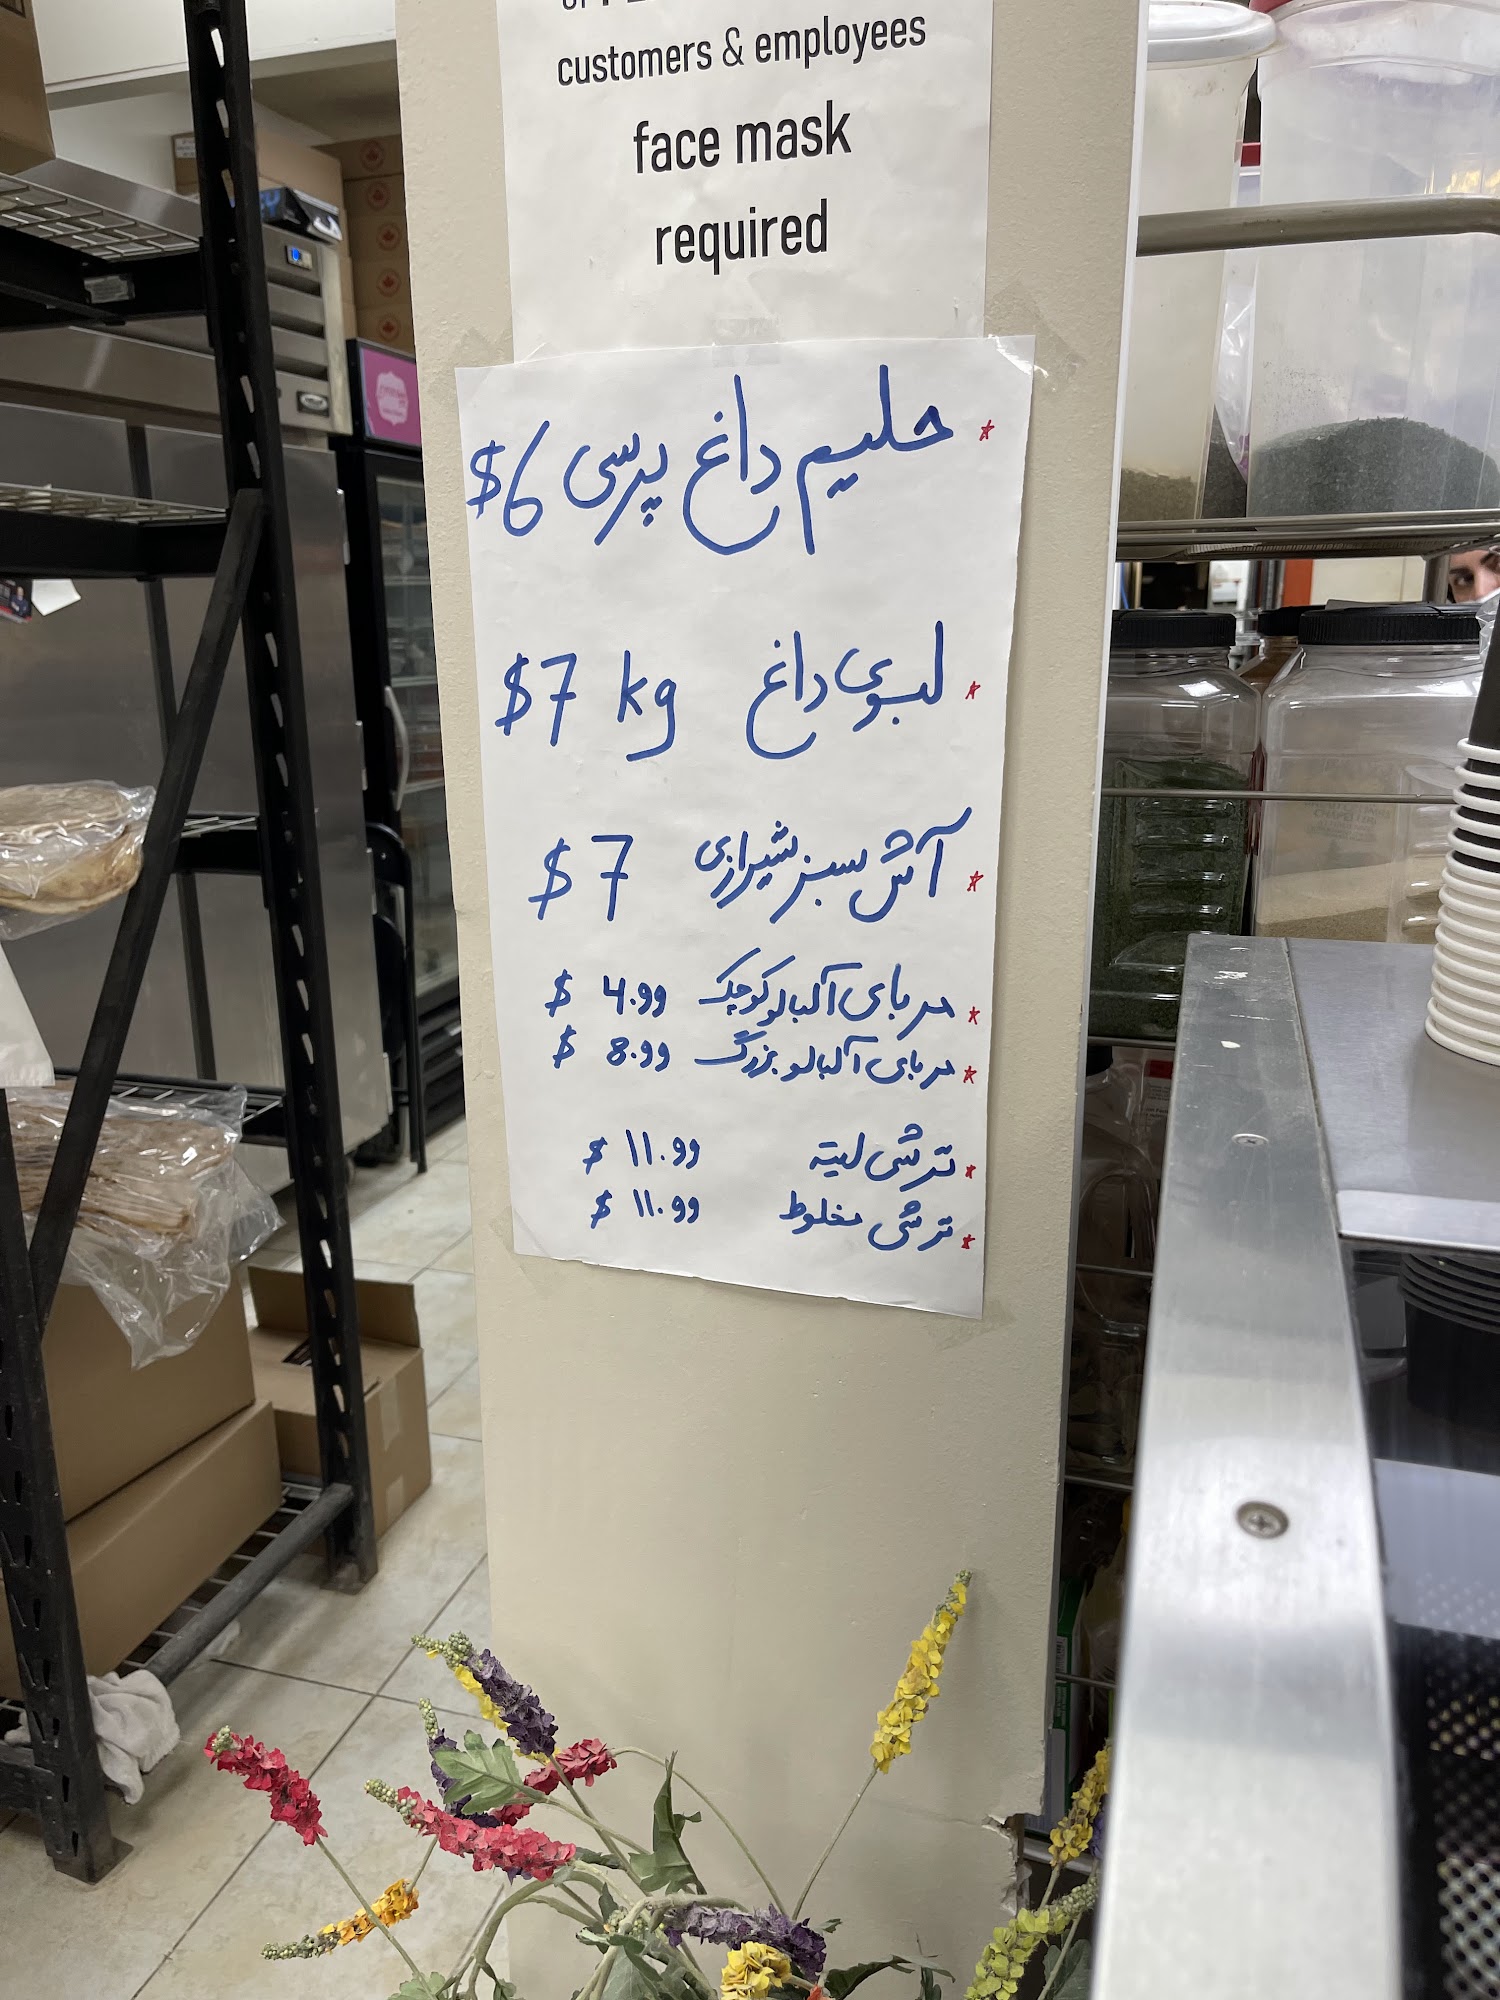 customers & employees
face mask
required
* حلیم داغ پرسی $6
* لبوی داغ $7 kg
* آش سبز شیرازی $7
* مربای آلبالو کوچک $ 4.99
* مربای آلبالو بزرگ $ 8.99
* ترشی لیته $ 11.99
* ترشی مخلوط $ 11.99